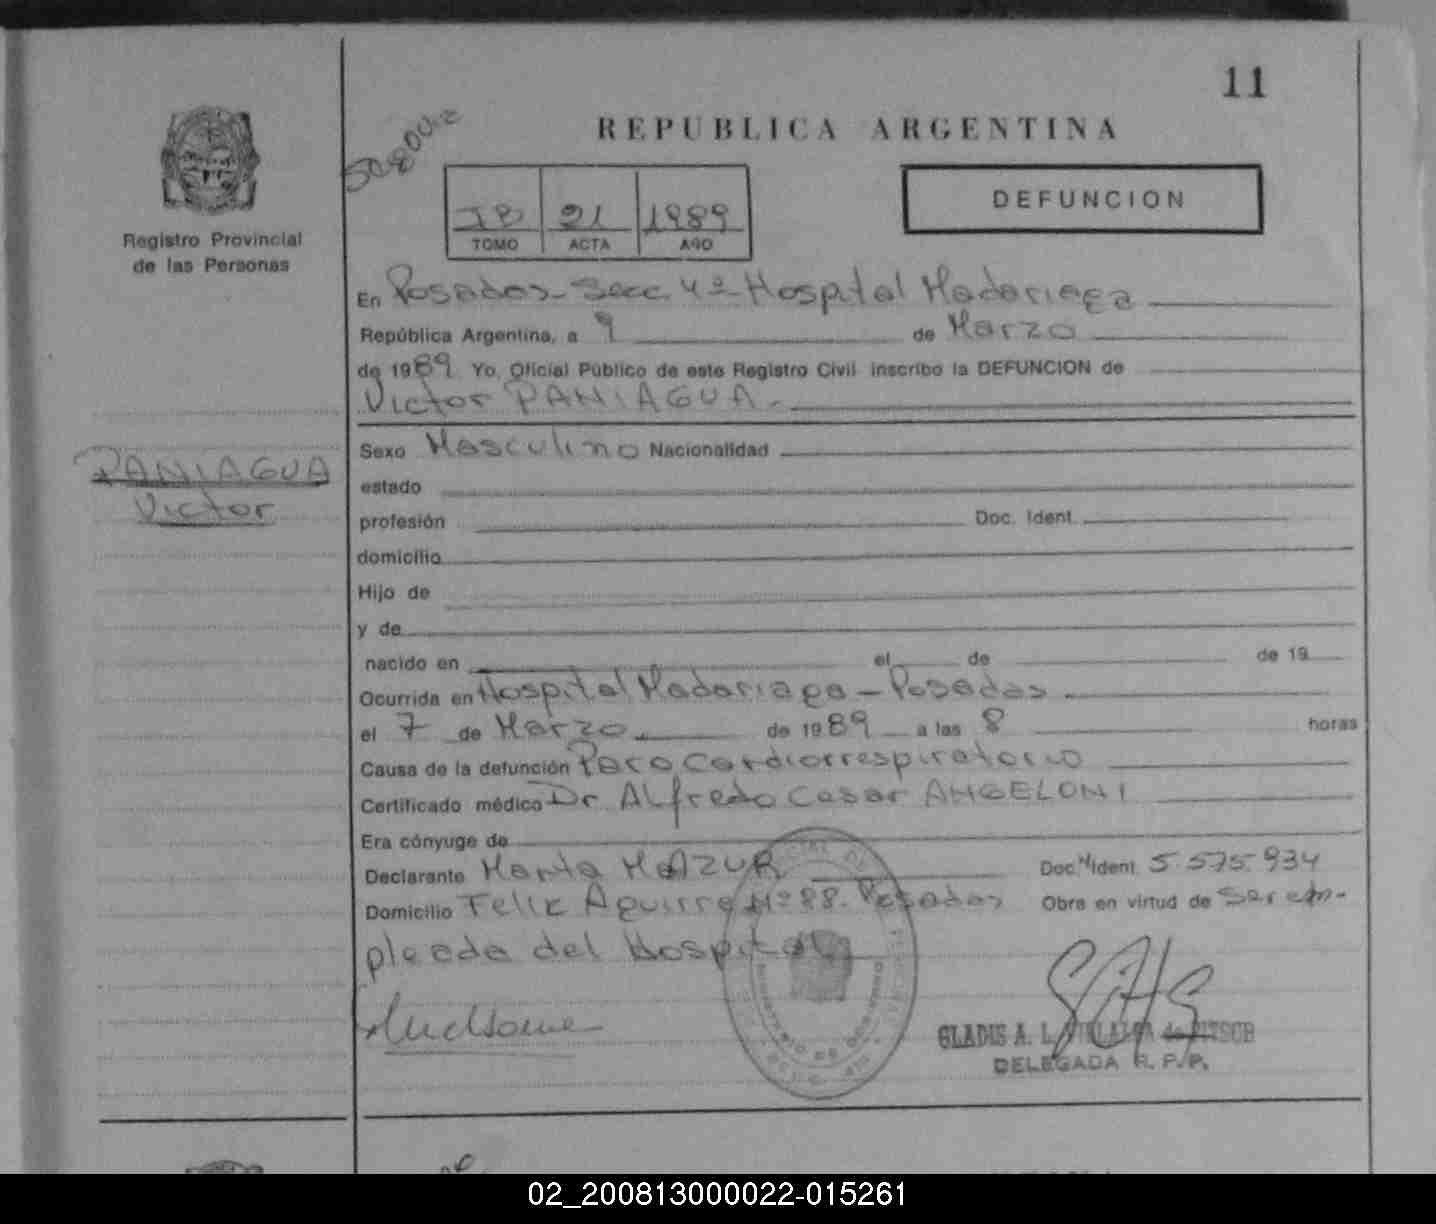 11
REPUBLICA ARGENTINA
DEFUNCION
21 1989
TOMO ACTA AÑO
Registro Provincial
de las Personas
En Posadas - Secc. 4º Hospital Madariaga
República Argentina, a 9 de Marzo
de 1989 Yo, Oficial Público de este Registro Civil inscribo la DEFUNCION de
Victor PANIAGUA.-
PANIAGUA
Victor
Sexo Masculino Nacionalidad
estado
profesión Doc. Ident.
domicilio
Hijo de
y de
nacido en el de de 19
Ocurrida en Hospital Madariaga - Posadas
el 7 de Marzo de 1989 a las 8 horas
Causa de la defunción Paro Cardiorrespiratorio
Certificado médico Dr. Alfredo Cesar ANGELONI
Era cónyuge de
Declarante Marta MAZUR Doc. Ident. 5.575.934
Domicilio Felix Aguirre Nº 88. Posadas Obra en virtud de Ser em-
pleada del Hospital
GLADIS A. L. VILLALBA de
DELEGADA R. P. P.
02_200813000022-015261